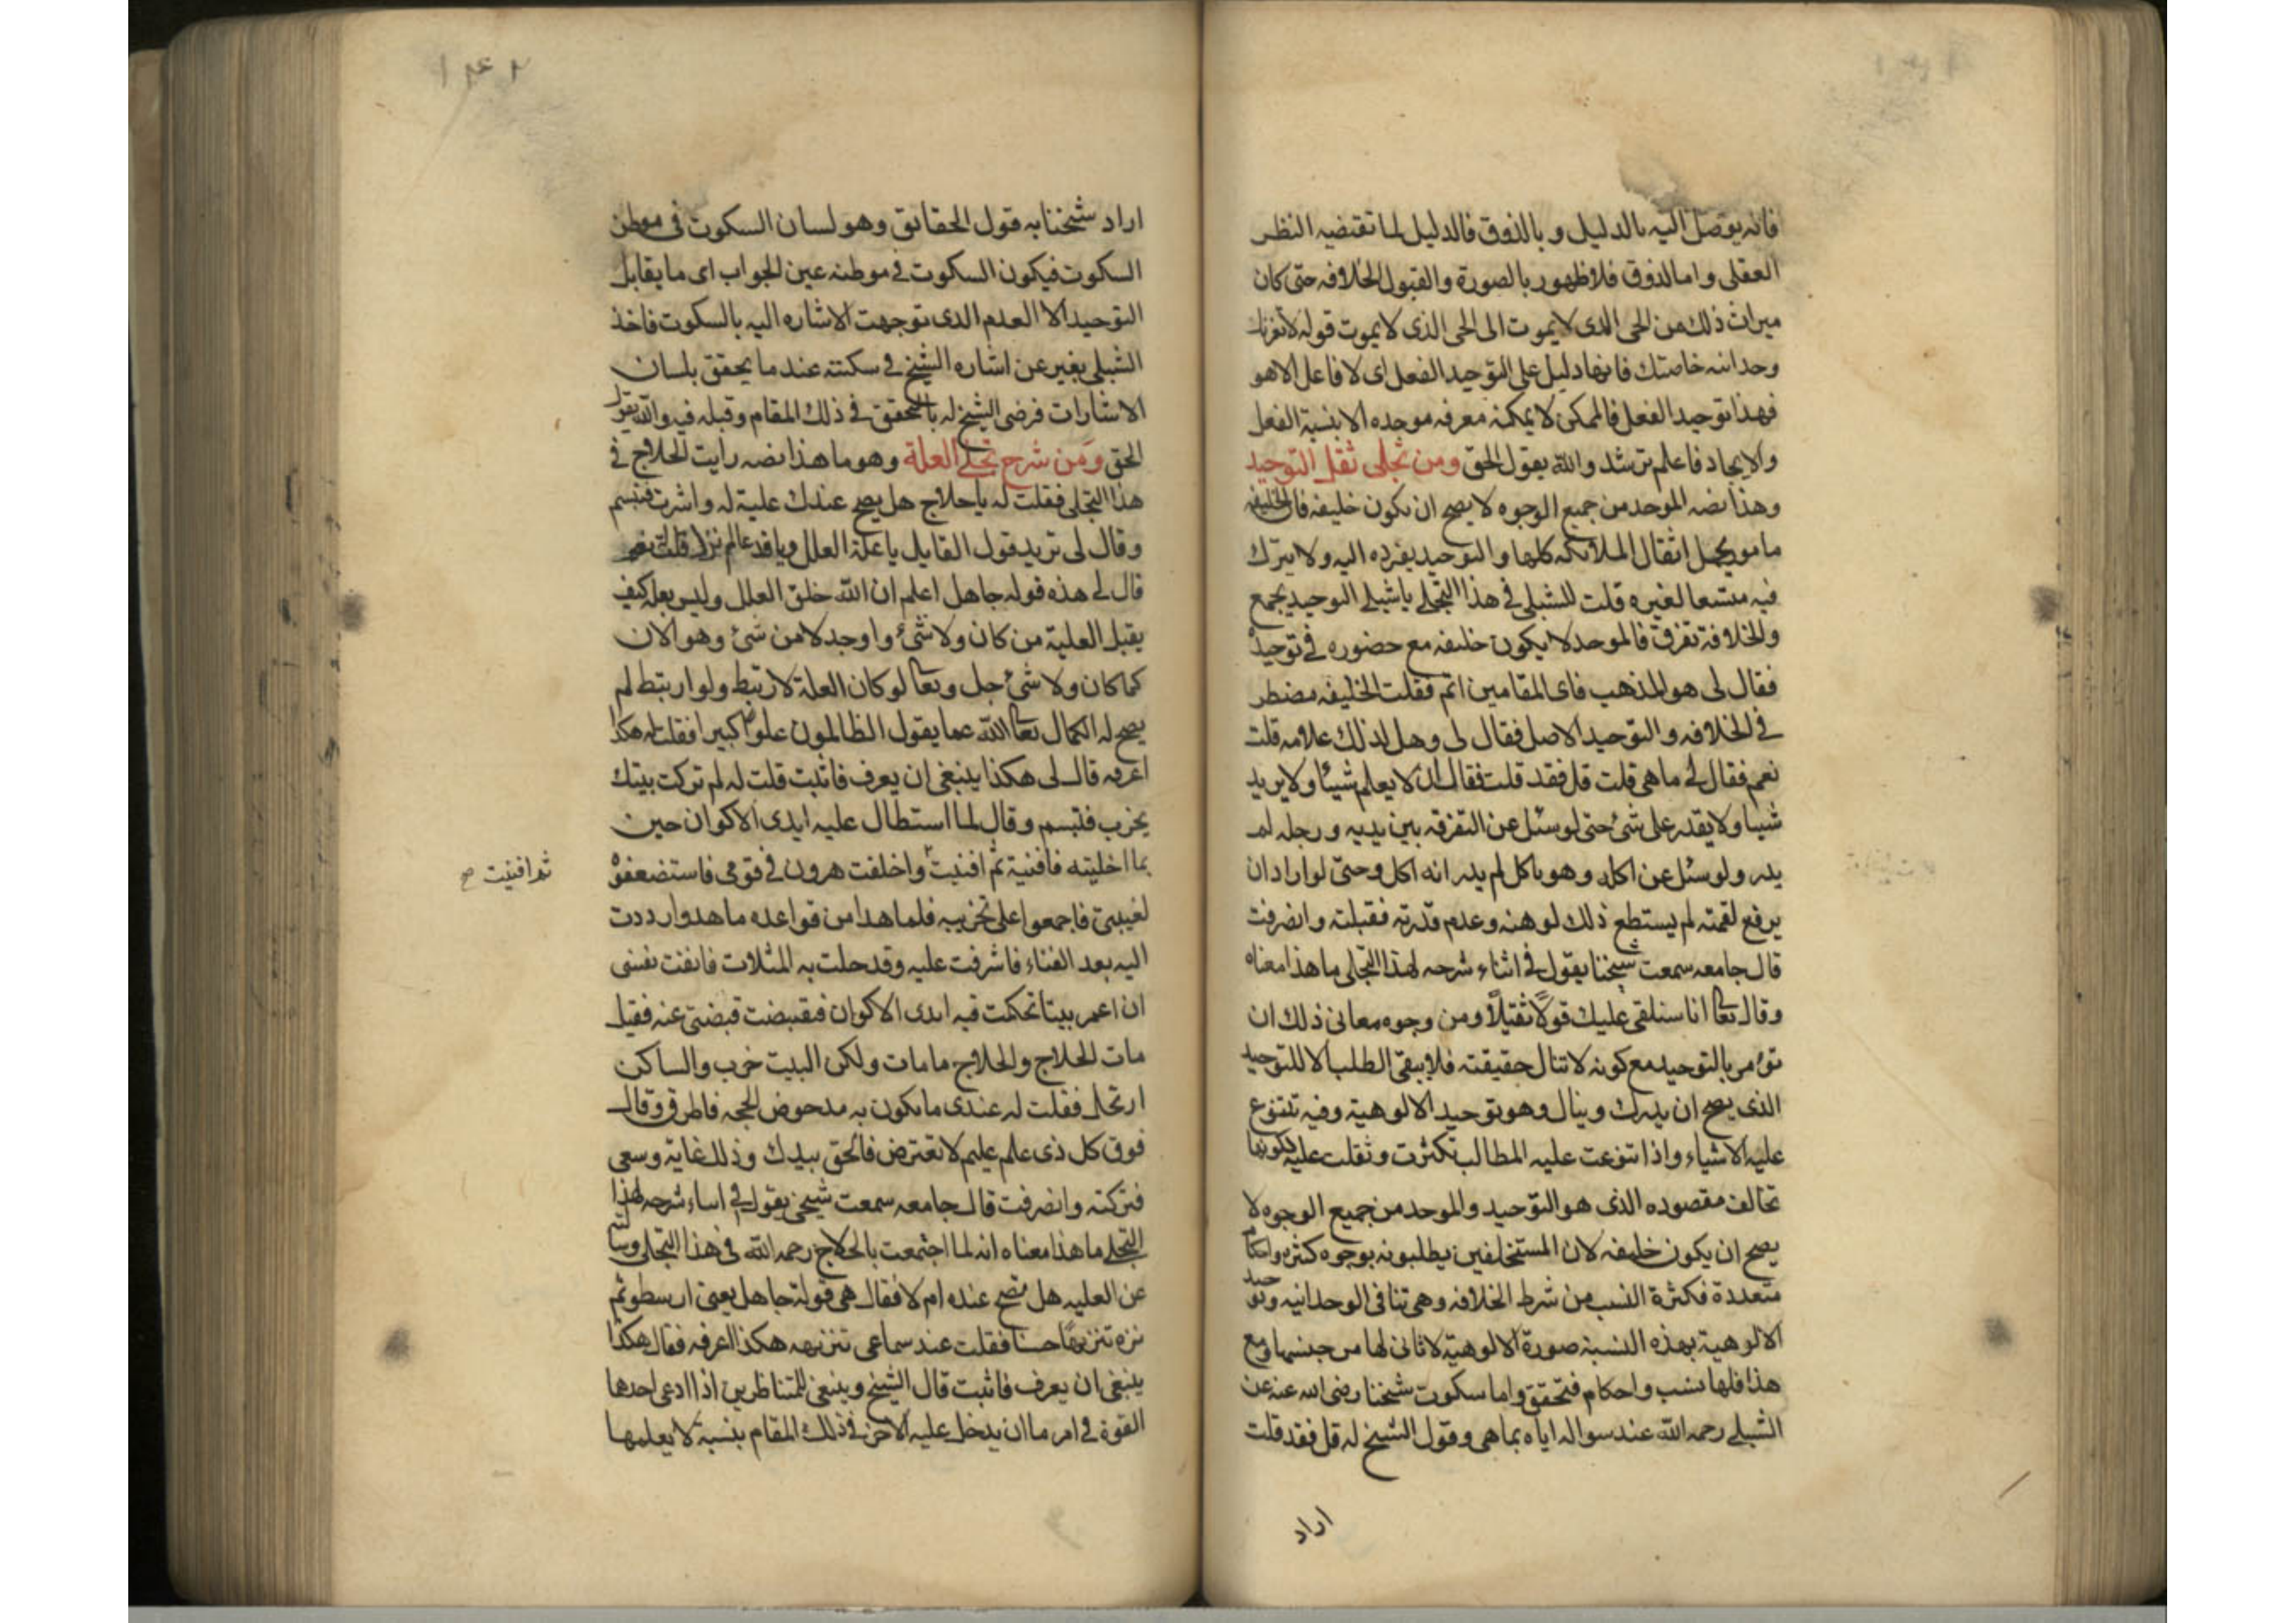 فانه يوصل اليه بالدليل و بالذوق فالدليل لما تقتضيه النظر
العقلى واما الذوق فلا ظهور بالصورة والقبول الخلافه حتى كان
ميراث ذلك من الحى الذى لا يموت الى الحى الذى لا يموت قوله لا تعزنك
وحدانيه خاصتك فانها دليل على التوحيد الفعل اى لا فاعل الا هو
فهذا توحيد الفعل فالممكن لا يمكنه معرفه موجده الا بنسبة الفعل
والايجاد فاعلم ترشد والله يقول الحق ومن تجلى ثقل التوحيد
وهذا نصه الموحد من جميع الوجوه لا يصح ان يكون خليفه فان الخليفه
مامور بحمل اثقال الملائكه كلها والتوحيد يفرده اليه ولا يترك
فيه متسعا لغيره قلت للشبلى فى هذا التجلى يا شبلى التوحيد يجمع
والخلافة تفرق فالموحد لا يكون خليفه مع حضوره فى توحيده
فقال لى هو المذهب فاى المقامين اتم فقلت الخليفه مضطر
فى الخلافه والتوحيد الاصل فقال لى وهل لذلك علامه قلت
نعم فقال لى ما هى قلت قل فقد قلت فقال ان لا يعلم شيئا ولا يريد
شيئا ولا يقدر على شئ حتى لو سئل عن التفرقه بين يديه ورجله لم
يدر ولو سئل عن اكله وهو ياكل لم يدر انه اكل وحتى لو اراد ان
يرفع لقمته لم يستطع ذلك لوهنه وعدم قدرته فقبلته وانصرفت
قال جامعه سمعت شيخنا يقول فى اثناء شرحه لهذا التجلى ما هذا معناه
وقال تعالى انا سنلقى عليك قولا ثقيلا ومن وجوه معانى ذلك ان
تؤمر بالتوحيد مع كونه لا تنال حقيقته فلا يبقى الطلب الا للتوحيد
الذى يصح ان يدرك وينال وهو توحيد الالوهية وفيه تتنوع
عليه الاشياء واذا تنوعت عليه المطالب تكثرت وثقلت عليه لكونها
تخالف مقصوده الذى هو التوحيد والموحد من جميع الوجوه لا
يصح ان يكون خليفه لان المستخلفين يطلبونه بوجوه كثيره واحكام
متعددة فكثرة النسب من شرط الخلافه وهى تنافى الوحدانيه وتوحيد
الالوهية بهذه النسبة صورة الالوهية لا ثانى لها من جنسها ومع
هذا فلها نسب واحكام فتحقق واما سكوت شيخنا رضى الله عنه عن
الشبلى رحمه الله عند سواله اياه بما هى وقول الشيخ له قل فقد قلت
اراد
١٤٢
اراد شيخنا به قول الحقائق وهو لسان السكوت فى موطن
السكوت فيكون السكوت فى موطنه عين الجواب اى ما يقابل
التوحيد الا العدم الذى توجهت الاشاره اليه بالسكوت فاخذ
الشبلى يغير عن اشاره الشيخ فى سكتته عندما يحقق بلسان
الاشارات فرضى الشيخ له بالتحقق فى ذلك المقام وقبله فيه والله يقول
الحق ومن شرح تجلى العلة وهو ما هذا نصه رايت الحلاج فى
هذا التجلى فقلت له يا حلاج هل يصح عندك علية له واشرت فتبسم
وقال لى تريد قول القايل يا علة العلل ويا قديما لم يزل قلت نعم
قال لى هذه قوله جاهل اعلم ان الله خلق العلل وليس بعله كيف
يقبل العلية من كان ولا شئ واوجد لا من شئ وهو الان
كما كان ولا شئ جل وتعالى لو كان العلة لارتبط ولو ارتبط لم
يصح له الكمال تعالى الله عما يقول الظالمون علوا كبيرا فقلت له هكذا
اعرفه قال لى هكذا ينبغى ان يعرف فاثبت قلت له لم تركت بيتك
يخرب فتبسم وقال لما استطال عليه ايدى الاكوان حين
بما اخليته فافنية ثم افنيت واخلفت هرون فى قومى فاستضعفوه
ثم افنيت صح
لغيبتى فاجمعوا على تخريبه فلما هدا من قواعده ما هدوا رددت
اليه بعد الفناء فاشرفت عليه وقد حلت به المثلات فانفت نفسى
ان اعمر بيتا تحكمت فيه ايدى الاكوان فقبضت قبضتى عنه فقيل
مات الحلاج والحلاج ما مات ولكن البيت خرب والساكن
ارتحل فقلت له عندى ما يكون به مدحوض الحجه فاطرق وقال
فوق كل ذى علم عليم لا تعترض فالحق بيدك وذلك غاية وسعى
فتركته وانصرفت قال جامعه سمعت شيخى يقول فى اثناء شرحه لهذا
التجلى ما هذا معناه انه لما اجتمعت بالحلاج رحمه الله فى هذا التجلى وسالته
عن العليه هل تصح عنده ام لا فقال هى قولة جاهل يعنى ارسطو ثم
نزه تنزيها حسنا فقلت عند سماعى تنزيهه هكذا اعرفه فقال هكذا
ينبغى ان يعرف فاثبت قال الشيخ وينبغى للمتناظرين اذا ادعى احدها
القوة فى امر ما ان يدخل عليه الاخر فى ذلك المقام بنسبة لا يعلمها